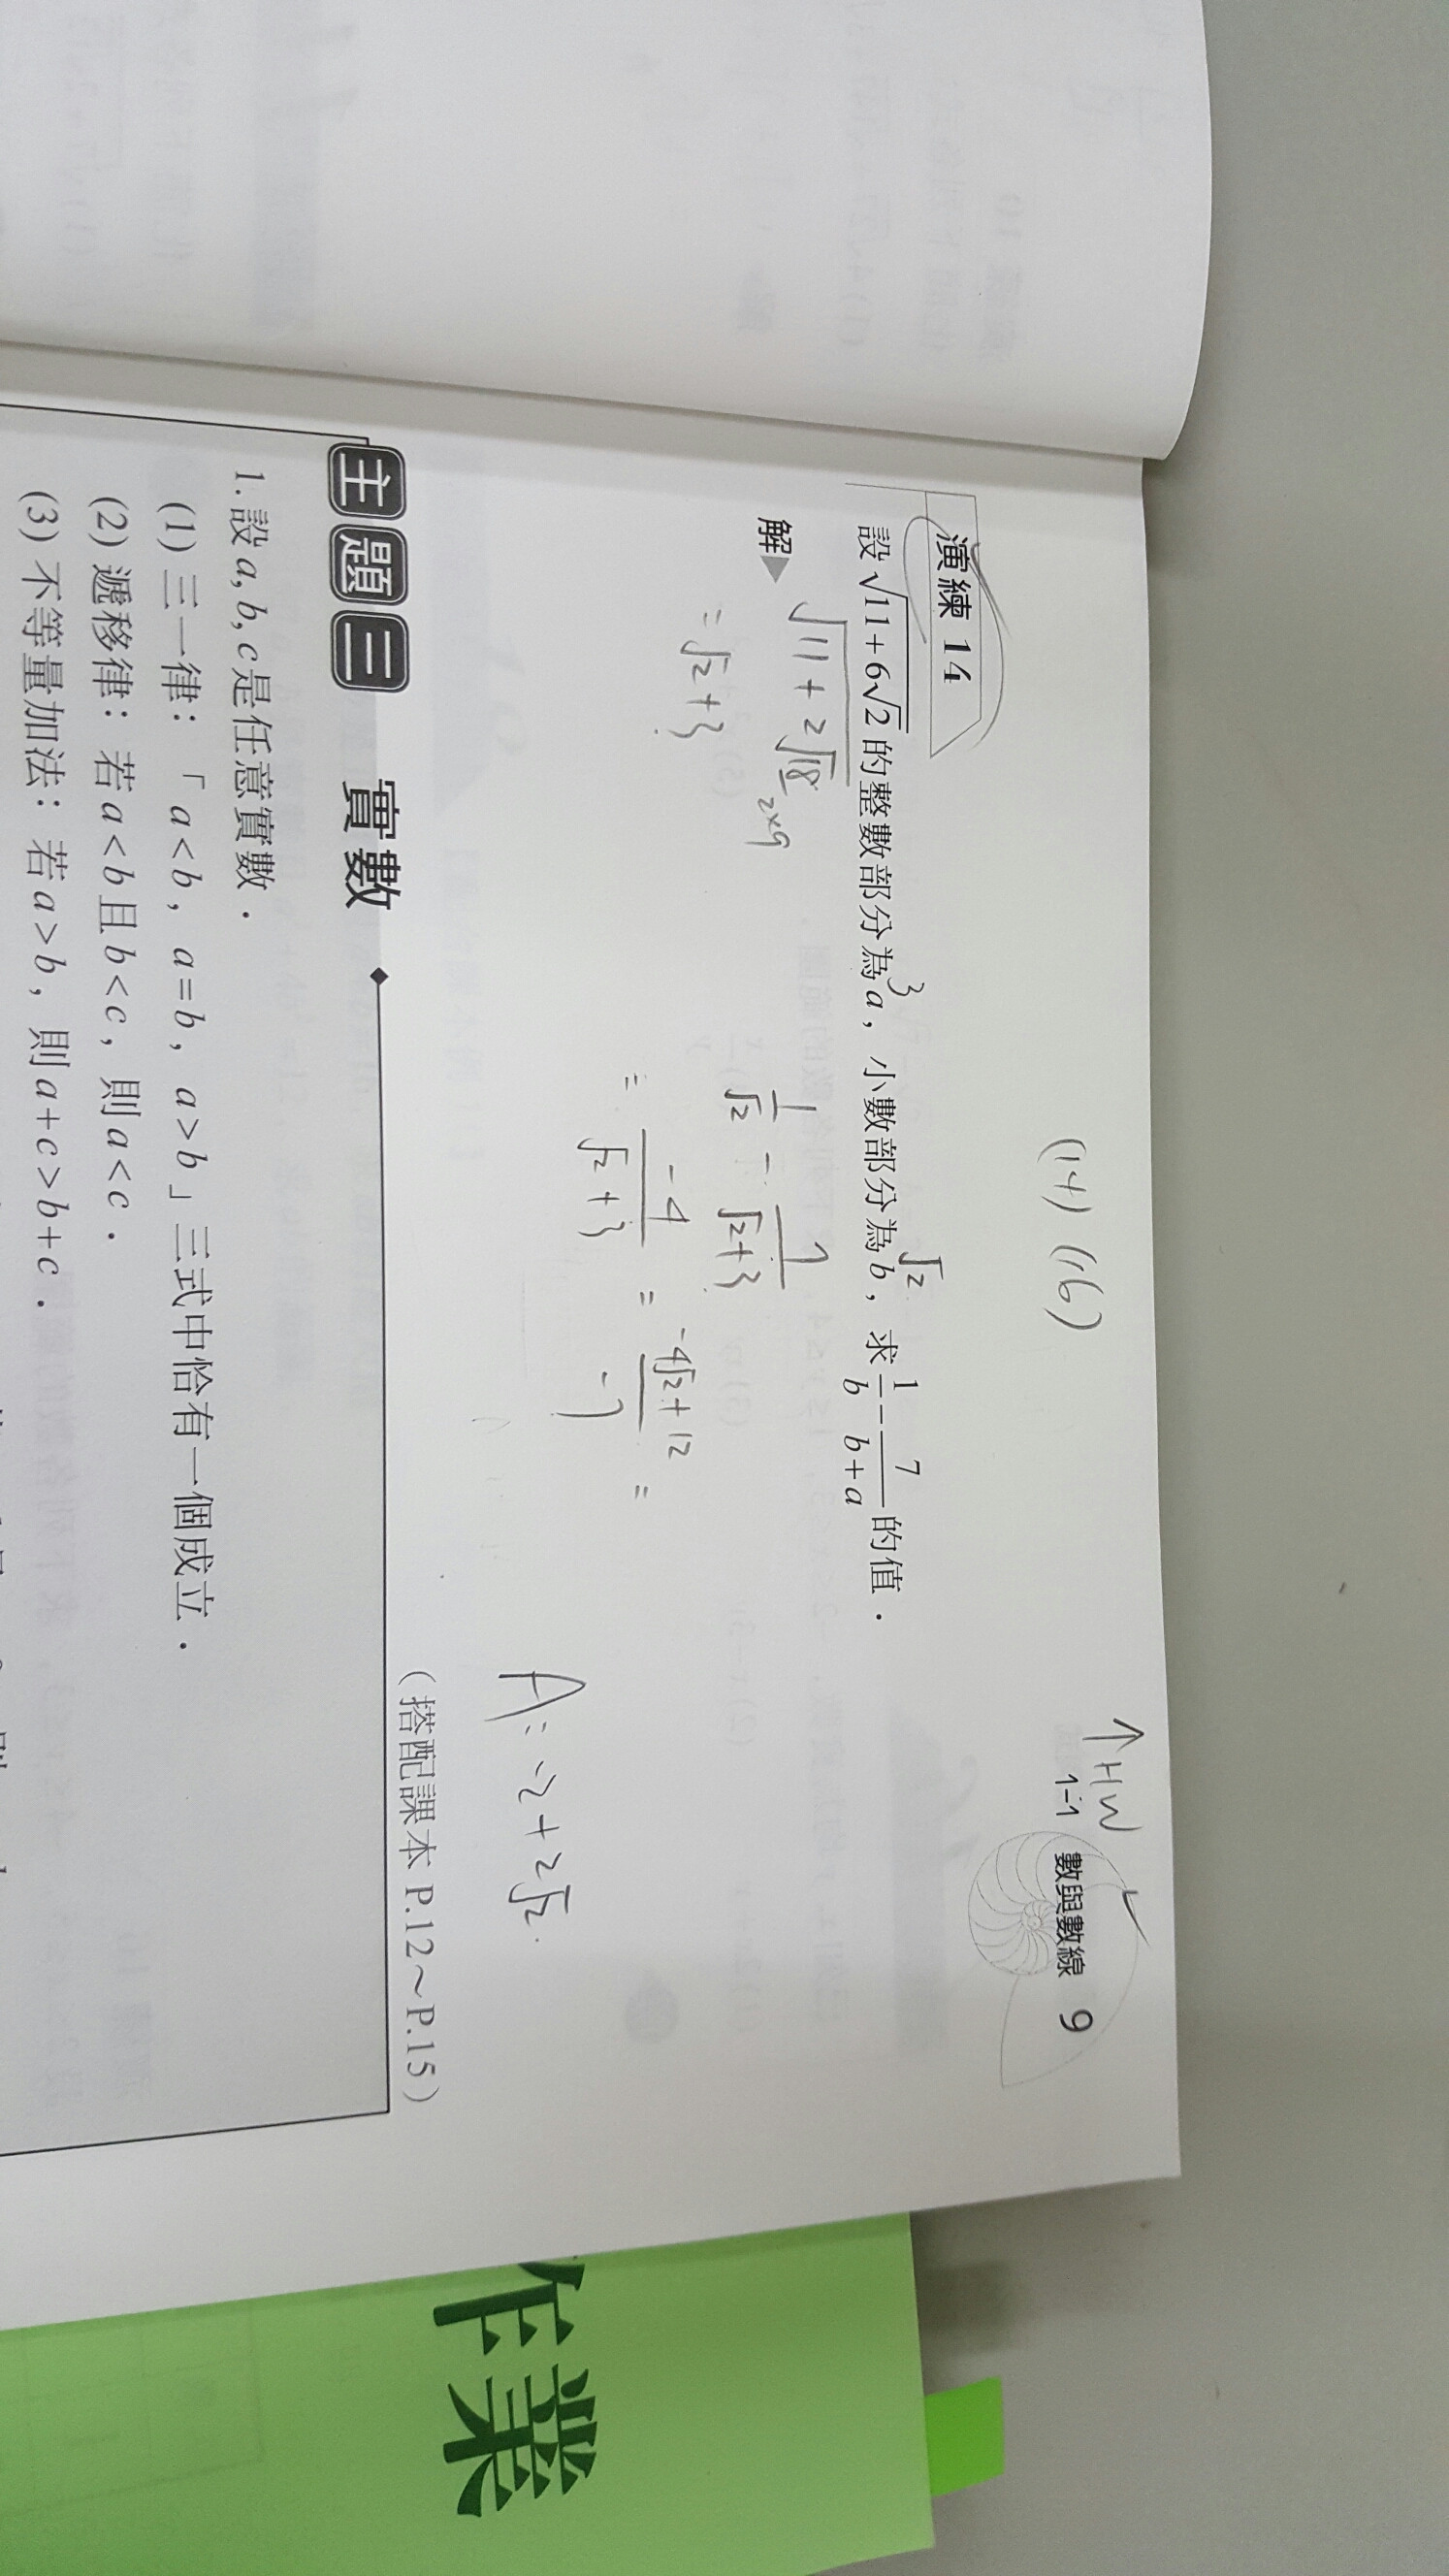 (14) (16)
↑HW
1-1 數與數線 9
演練 14
設√(11+6√2)的整數部分為a，小數部分為b，求1/b－7/(b+a)的值．
3
√2
解▶
√(11+2√18)
2×9
=√2+3
1/√2 - 7/(√2+3)
= -4/(√2+3) = (-4√2+12)/-7 =
A: -2+2√2.
主題三 實數
（搭配課本 P.12～P.15）
1.設a, b, c是任意實數．
(1)三一律：「a<b，a=b，a>b」三式中恰有一個成立．
(2)遞移律：若a<b且b<c，則a<c．
(3)不等量加法：若a>b，則a+c>b+c．
作業